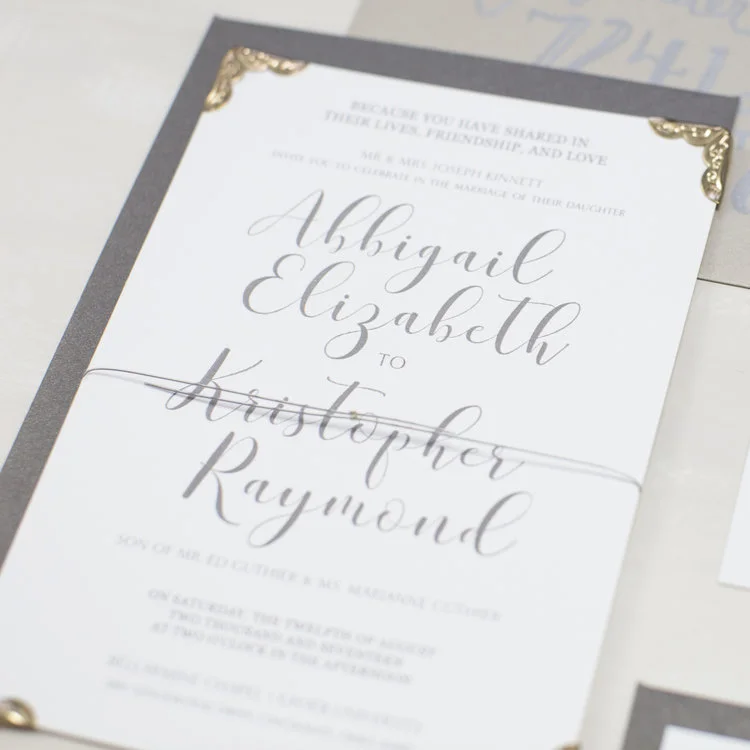 7241
BECAUSE YOU HAVE SHARED IN
THEIR LIVES, FRIENDSHIP, AND LOVE
MR & MRS JOSEPH KINNETT
INVITE YOU TO CELEBRATE IN THE MARRIAGE OF THEIR DAUGHTER
Abbigail
Elizabeth
TO
Kristopher
Raymond
SON OF MR. ED GUTHIER & MS. MARIANNE GUTHIER
ON SATURDAY, THE TWELFTH OF AUGUST
TWO THOUSAND AND SEVENTEEN
AT TWO O'CLOCK IN THE AFTERNOON
BELLARMINE CHAPEL | XAVIER UNIVERSITY